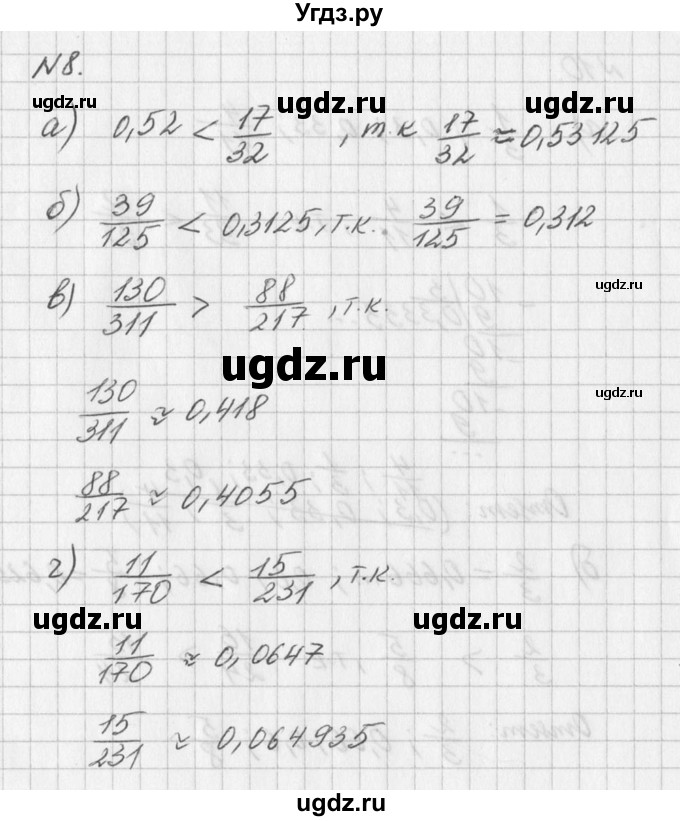 Угдз.ру
N8.
ugdz.ru
ugdz.ru
ugdz.ru
а) 0,52 < 17/32, т.к 17/32 ≈ 0,53125
б) 39/125 < 0,3125, т.к. 39/125 = 0,312
ugdz.ru
в) 130/311 > 88/217, т.к.
ugdz.ru
130/311 ≈ 0,418
ugdz.ru
88/217 ≈ 0,4055
г) 11/170 < 15/231, т.к.
ugdz.ru
ugdz.ru
11/170 ≈ 0,0647
15/231 ≈ 0,064935
ugdz.ru
ugdz.ru